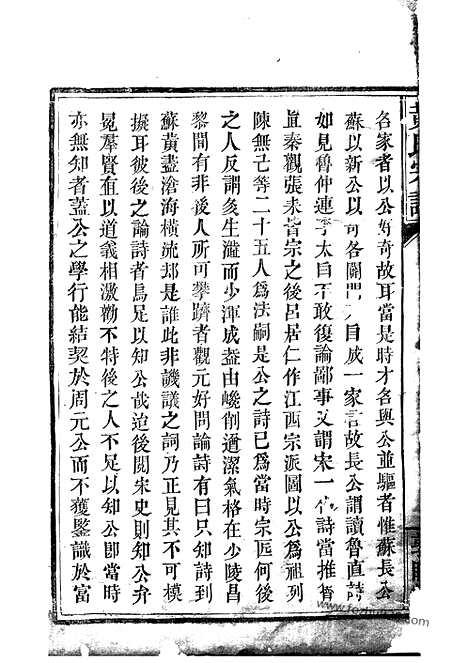 名家者以公好奇故耳當是時才名與公並驅者惟蘇長公
蘇以新公以奇各闢門 自成一家言故長公謂讀魯直詩
如見魯仲連李太白不敢復論鄙事又謂宋一代詩當推魯
直秦觀張耒皆宗之後呂居仁作江西宗派圖以公為祖列
陳無己等二十五人為法嗣是公之詩已為當時宗匠何後
之人反謂多生澁而少渾成葢由峻削遒潔氣格在少陵昌
黎間有非後人所可攀躋者觀元好問論詩有曰只知詩到
蘇黃盡滄海橫流却是誰此非譏議之詞乃正見其不可模
擬耳彼後之論詩者烏足以知公哉迨後閱宋史則知公弁
冕羣賢 以道義相激勸不特後之人不足以知公卽當時
亦無知者葢公之學行能結契於周元公而不獲鑒識於富
黃氏宗譜